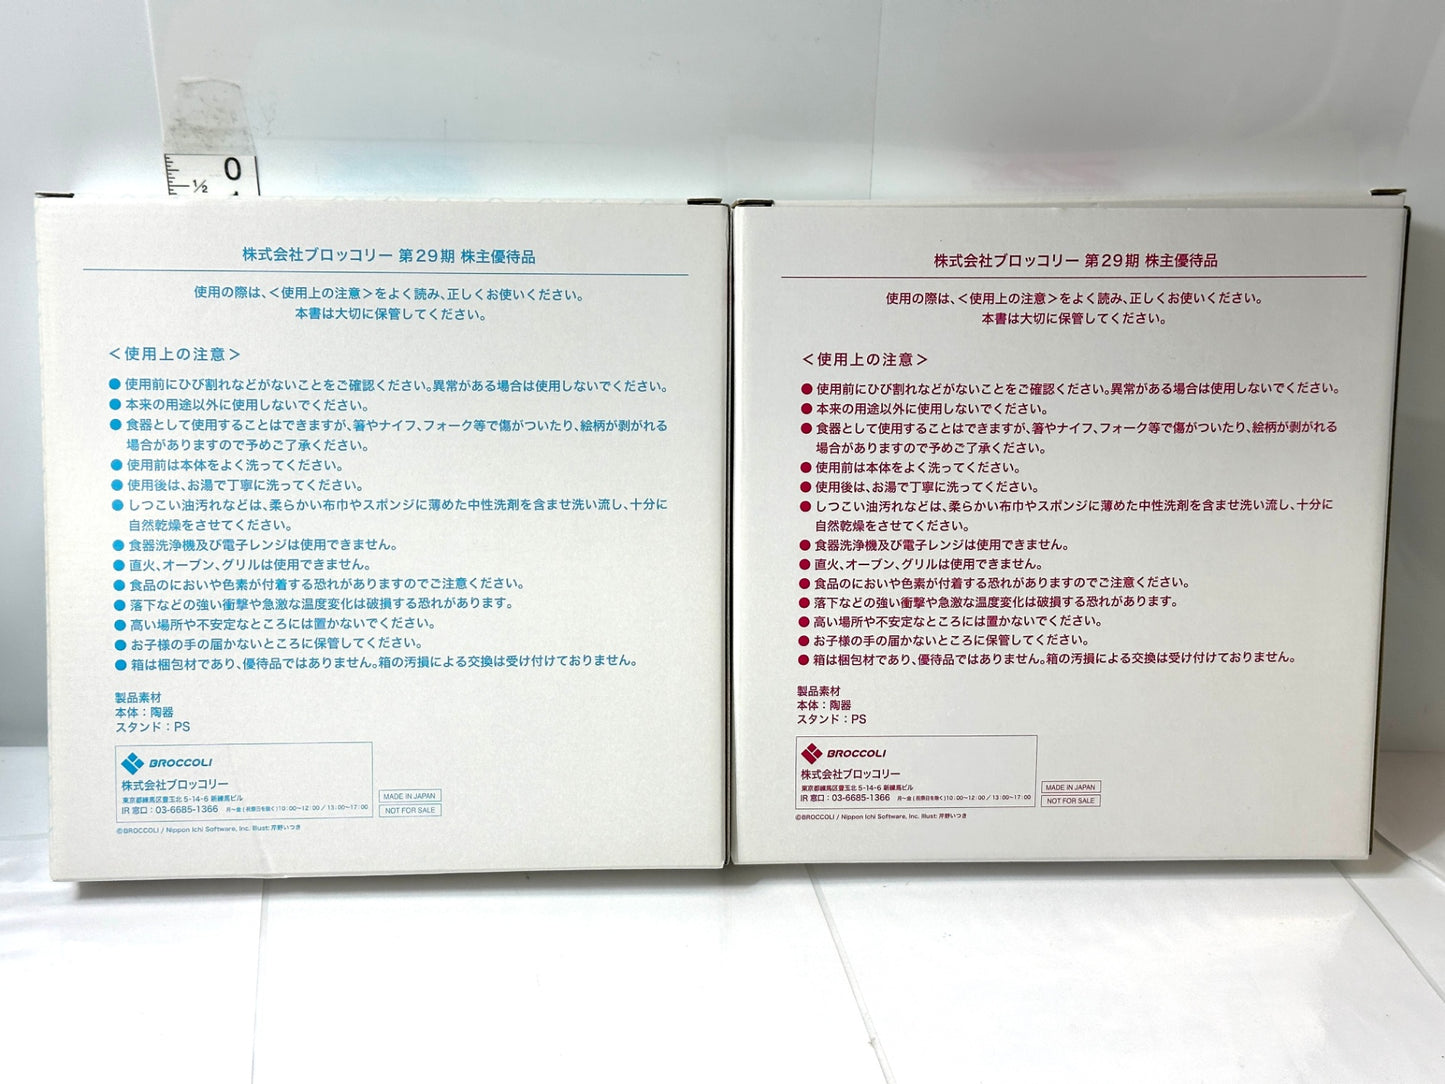 0
½
株式会社ブロッコリー 第29期 株主優待品
使用の際は、<使用上の注意>をよく読み、正しくお使いください。
本書は大切に保管してください。
<使用上の注意>
● 使用前にひび割れなどがないことをご確認ください。異常がある場合は使用しないでください。
● 本来の用途以外に使用しないでください。
● 食器として使用することはできますが、箸やナイフ、フォーク等で傷がついたり、絵柄が剥がれる
場合がありますので予めご了承ください。
● 使用前は本体をよく洗ってください。
● 使用後は、お湯で丁寧に洗ってください。
● しつこい油汚れなどは、柔らかい布巾やスポンジに薄めた中性洗剤を含ませ洗い流し、十分に
自然乾燥をさせてください。
● 食器洗浄機及び電子レンジは使用できません。
● 直火、オーブン、グリルは使用できません。
● 食品のにおいや色素が付着する恐れがありますのでご注意ください。
● 落下などの強い衝撃や急激な温度変化は破損する恐れがあります。
● 高い場所や不安定なところには置かないでください。
● お子様の手の届かないところに保管してください。
● 箱は梱包材であり、優待品ではありません。箱の汚損による交換は受け付けておりません。
製品素材
本体：陶器
スタンド：PS
BROCCOLI
株式会社ブロッコリー
東京都練馬区豊玉北 5-14-6 新練馬ビル
IR 窓口：03-6685-1366 月〜金 ( 祝祭日を除く ) 10：00〜12：00 / 13：00〜17：00
MADE IN JAPAN
NOT FOR SALE
©BROCCOLI / Nippon Ichi Software, Inc. Illust: 芹野いつき
株式会社ブロッコリー 第29期 株主優待品
使用の際は、<使用上の注意>をよく読み、正しくお使いください。
本書は大切に保管してください。
<使用上の注意>
● 使用前にひび割れなどがないことをご確認ください。異常がある場合は使用しないでください。
● 本来の用途以外に使用しないでください。
● 食器として使用することはできますが、箸やナイフ、フォーク等で傷がついたり、絵柄が剥がれる
場合がありますので予めご了承ください。
● 使用前は本体をよく洗ってください。
● 使用後は、お湯で丁寧に洗ってください。
● しつこい油汚れなどは、柔らかい布巾やスポンジに薄めた中性洗剤を含ませ洗い流し、十分に
自然乾燥をさせてください。
● 食器洗浄機及び電子レンジは使用できません。
● 直火、オーブン、グリルは使用できません。
● 食品のにおいや色素が付着する恐れがありますのでご注意ください。
● 落下などの強い衝撃や急激な温度変化は破損する恐れがあります。
● 高い場所や不安定なところには置かないでください。
● お子様の手の届かないところに保管してください。
● 箱は梱包材であり、優待品ではありません。箱の汚損による交換は受け付けておりません。
製品素材
本体：陶器
スタンド：PS
BROCCOLI
株式会社ブロッコリー
東京都練馬区豊玉北 5-14-6 新練馬ビル
IR 窓口：03-6685-1366 月〜金 ( 祝祭日を除く ) 10：00〜12：00 / 13：00〜17：00
MADE IN JAPAN
NOT FOR SALE
©BROCCOLI / Nippon Ichi Software, Inc. Illust: 芹野いつき